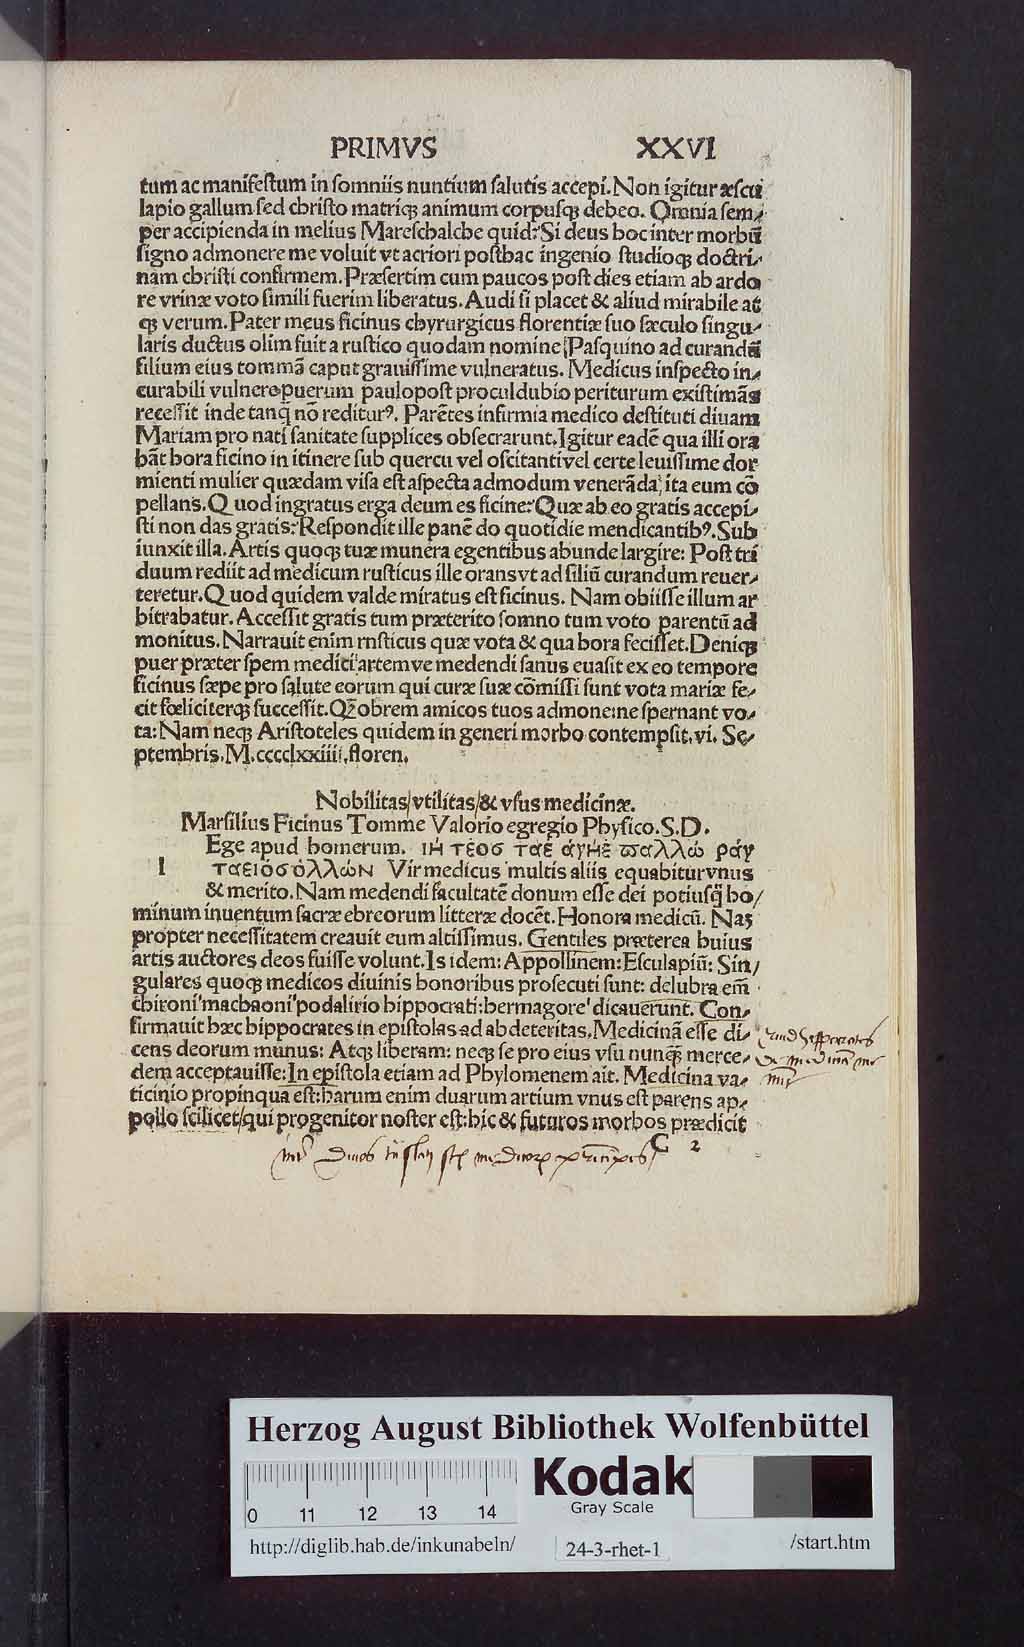 PRIMVS XXVI
tum ac manifestum in somniis nuntium salutis accepi. Non igitur æscu
lapio gallum sed christo matriqꝫ animum corpusqꝫ debeo. Omnia sem-
per accipienda in melius Mareschalche quid? Si deus hoc inter morbū
signo admonere me voluit vt acriori posthac ingenio studioqꝫ doctri-
nam christi confirmem. Præsertim cum paucos post dies etiam ab ardo
re vrinæ voto simili fuerim liberatus. Audi si placet & aliud mirabile at
qꝫ verum. Pater meus ficinus chyrurgicus florentiæ suo sæculo singu-
laris ductus olim fuit a rustico quodam nomine Pasquino ad curandū
filium eius tommā caput grauissime vulneratus. Medicus inspecto in-
curabili vulnere puerum paulopost proculdubio periturum existimās
recessit inde tanq̄ nō rediturꝰ. Parētes infirmia medico destituti diuam
Mariam pro nati sanitate supplices obsecrarunt. Igitur eadē qua illi ora
bāt hora ficino in itinere sub quercu vel oscitanti vel certe leuissime dor
mienti mulier quædam visa est aspectu admodum venerāda, ita eum cō
pellans. Quod ingratus erga deum es ficine? Quæ ab eo gratis accepi-
sti non das gratis? Respondit ille panē do quotidie mendicantibꝰ. Sub
iunxit illa. Artis quoqꝫ tuæ munera egentibus abunde largire: Post tri
duum rediit ad medicum rusticus ille orans vt ad filiū curandum reuer-
teretur. Quod quidem valde miratus est ficinus. Nam obiisse illum ar
bitrabatur. Accessit gratis tum præterito somno tum voto parentū ad
monitus. Narrauit enim rnsticus quæ vota & qua hora fecisset. Deniqꝫ
puer præter spem medici artemve medendi sanus euasit ex eo tempore
ficinus sæpe pro salute eorum qui curæ suæ cōmissi sunt vota mariæ fe-
cit fœliciterqꝫ successit. Qꝫobrem amicos tuos admone:ne spernant vo-
ta: Nam neqꝫ Aristoteles quidem in generi morbo contempsit. vi. Se-
ptembris. M.cccclxxiiii. floren.
Nobilitas/vtilitas/& vsus medicinæ.
Marsilius Ficinus Tomme Valorio egregio Physico. S.D.
Ege apud homerum. ιἡ τέοσ ταέ άγηέ ϖαλλώ ράγ
l ταειόσόλλών Vir medicus multis aliis equabitur vnus
& merito. Nam medendi facultatē donum esse dei potiusq̄ ho/
minum inuentum sacræ ebreorum litteræ docēt. Honora medicū. Naꝫ
propter necessitatem creauit eum altissimus. Gentiles præterea huius
artis auctores deos fuisse volunt. Isidem: Appollinem: Esculapiū: Sin/
gulares quoqꝫ medicos diuinis honoribus prosecuti sunt: delubra em̄
chironi' machaoni' podalirio hippocrati: hermagore' dicauerunt. Con-
firmauit hæc hippocrates in epistolas ad abderitas. Medicinā esse di-
cens deorum munus: Atqꝫ liberam: neqꝫ se pro eius vsu nunqꝫ merce-
dem acceptauisse: In epistola etiam ad Phylomenem ait. Medicina va-
ticinio propinqua est: harum enim duarum artium vnus est parens ap-
pollo scilicet/qui progenitor noster est: hic & futuros morbos prædicit
C 2
Herzog August Bibliothek Wolfenbüttel
0 11 12 13 14
Kodak
Gray Scale
http://diglib.hab.de/inkunabeln/ 24-3-rhet-1 /start.htm